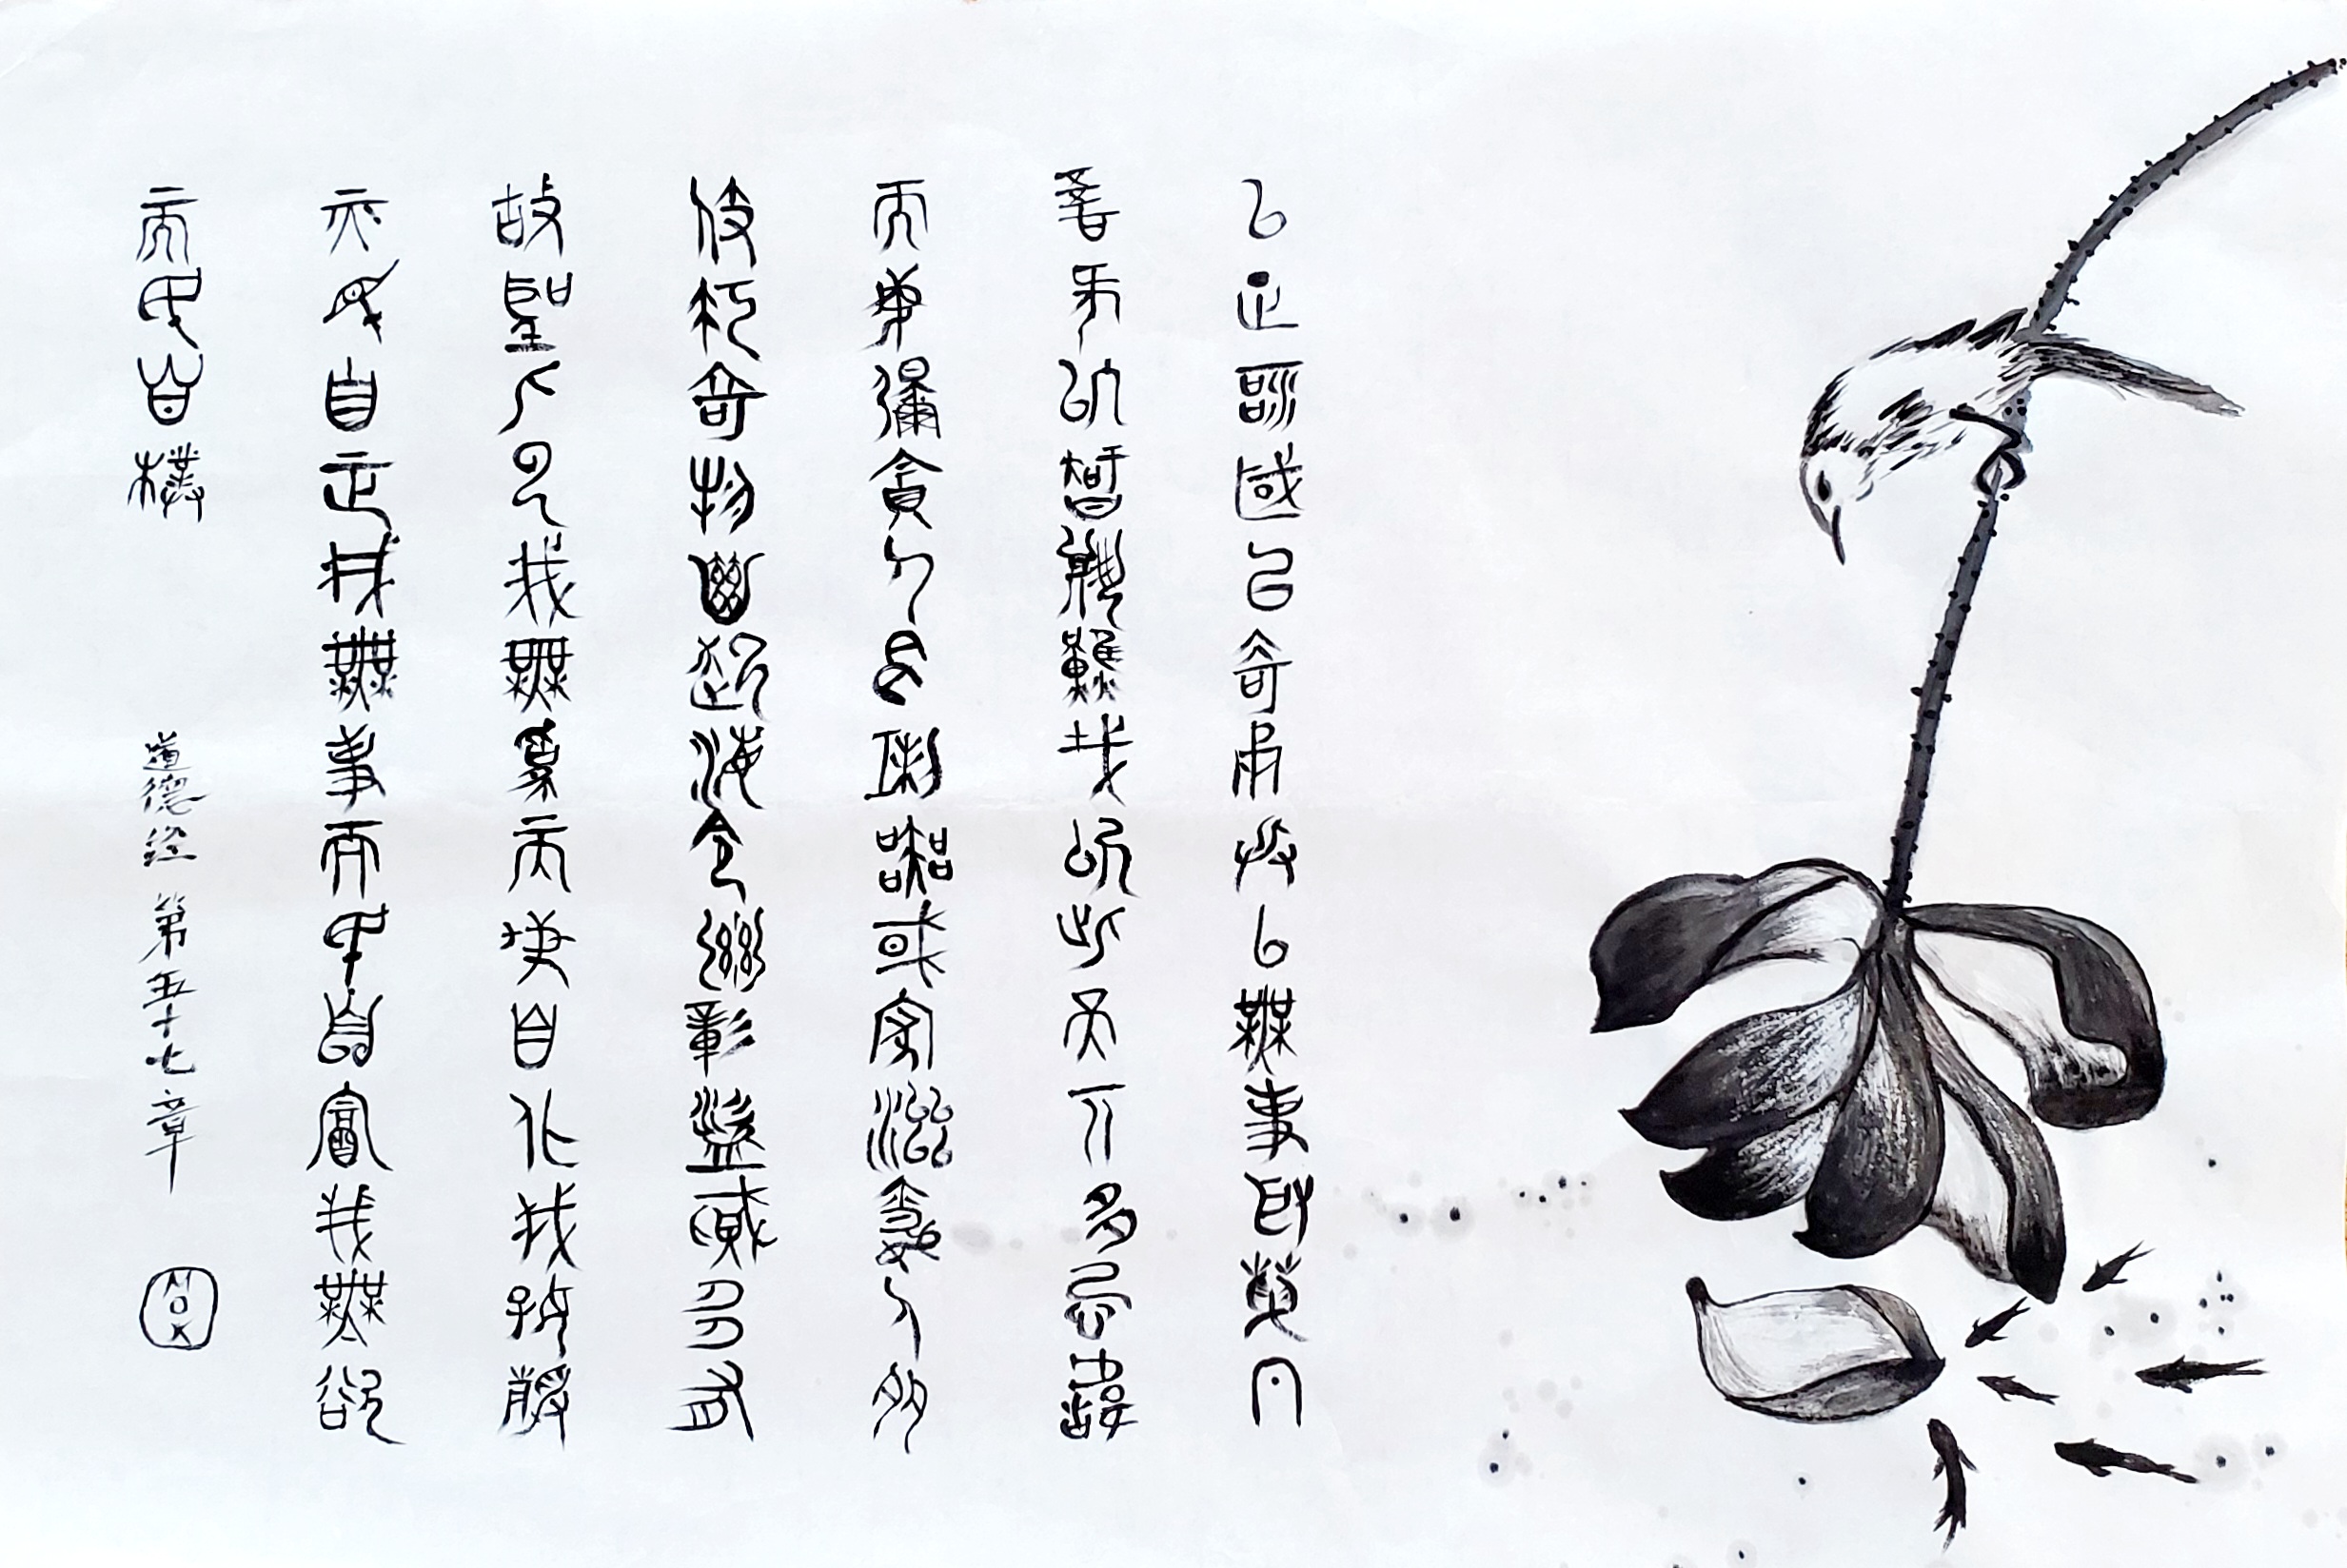 以正治國以奇用兵以無事取天下
吾何以知其然哉以此天下多忌諱
而民彌貧人多利器國家滋昏人多
伎巧奇物滋起法令滋彰盜賊多有
故聖人云我無為而民自化我好靜
而民自正我無事而民自富我無欲
而民自樸
道德經 第五十七章